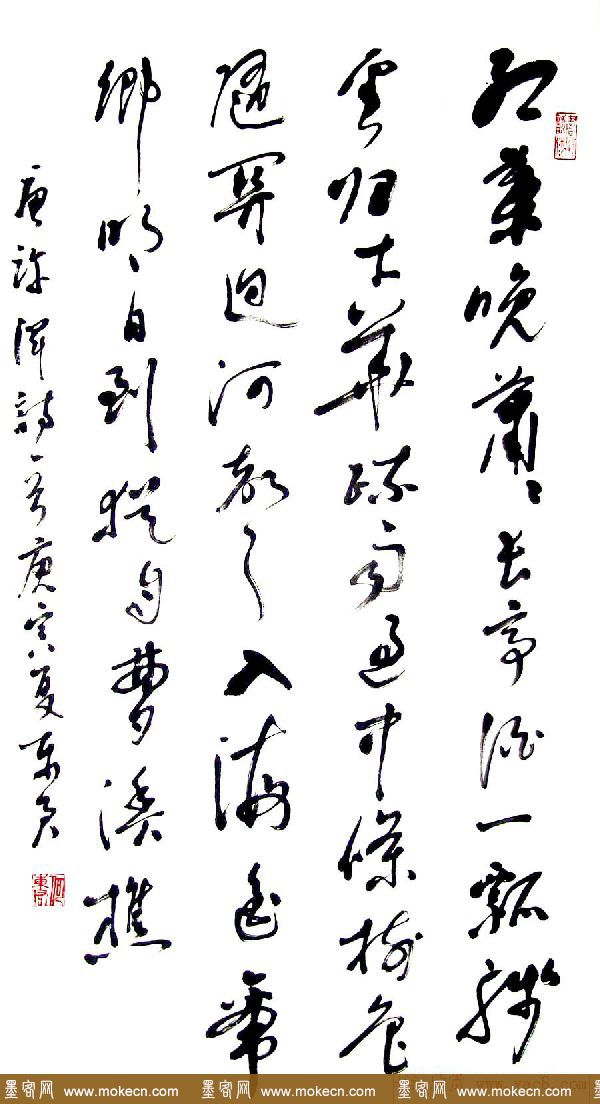 红葉晚蕭々長亭酒一瓢殘
雲归太華疏雨過中條樹色
隨關迥河聲入海遥帝
鄉明日到猶自夢漁樵
唐許渾詩一首庚寅夏東
墨客网 www.mokecn.com 墨客网 www.mokecn.com 墨客网 www.mokecn.com